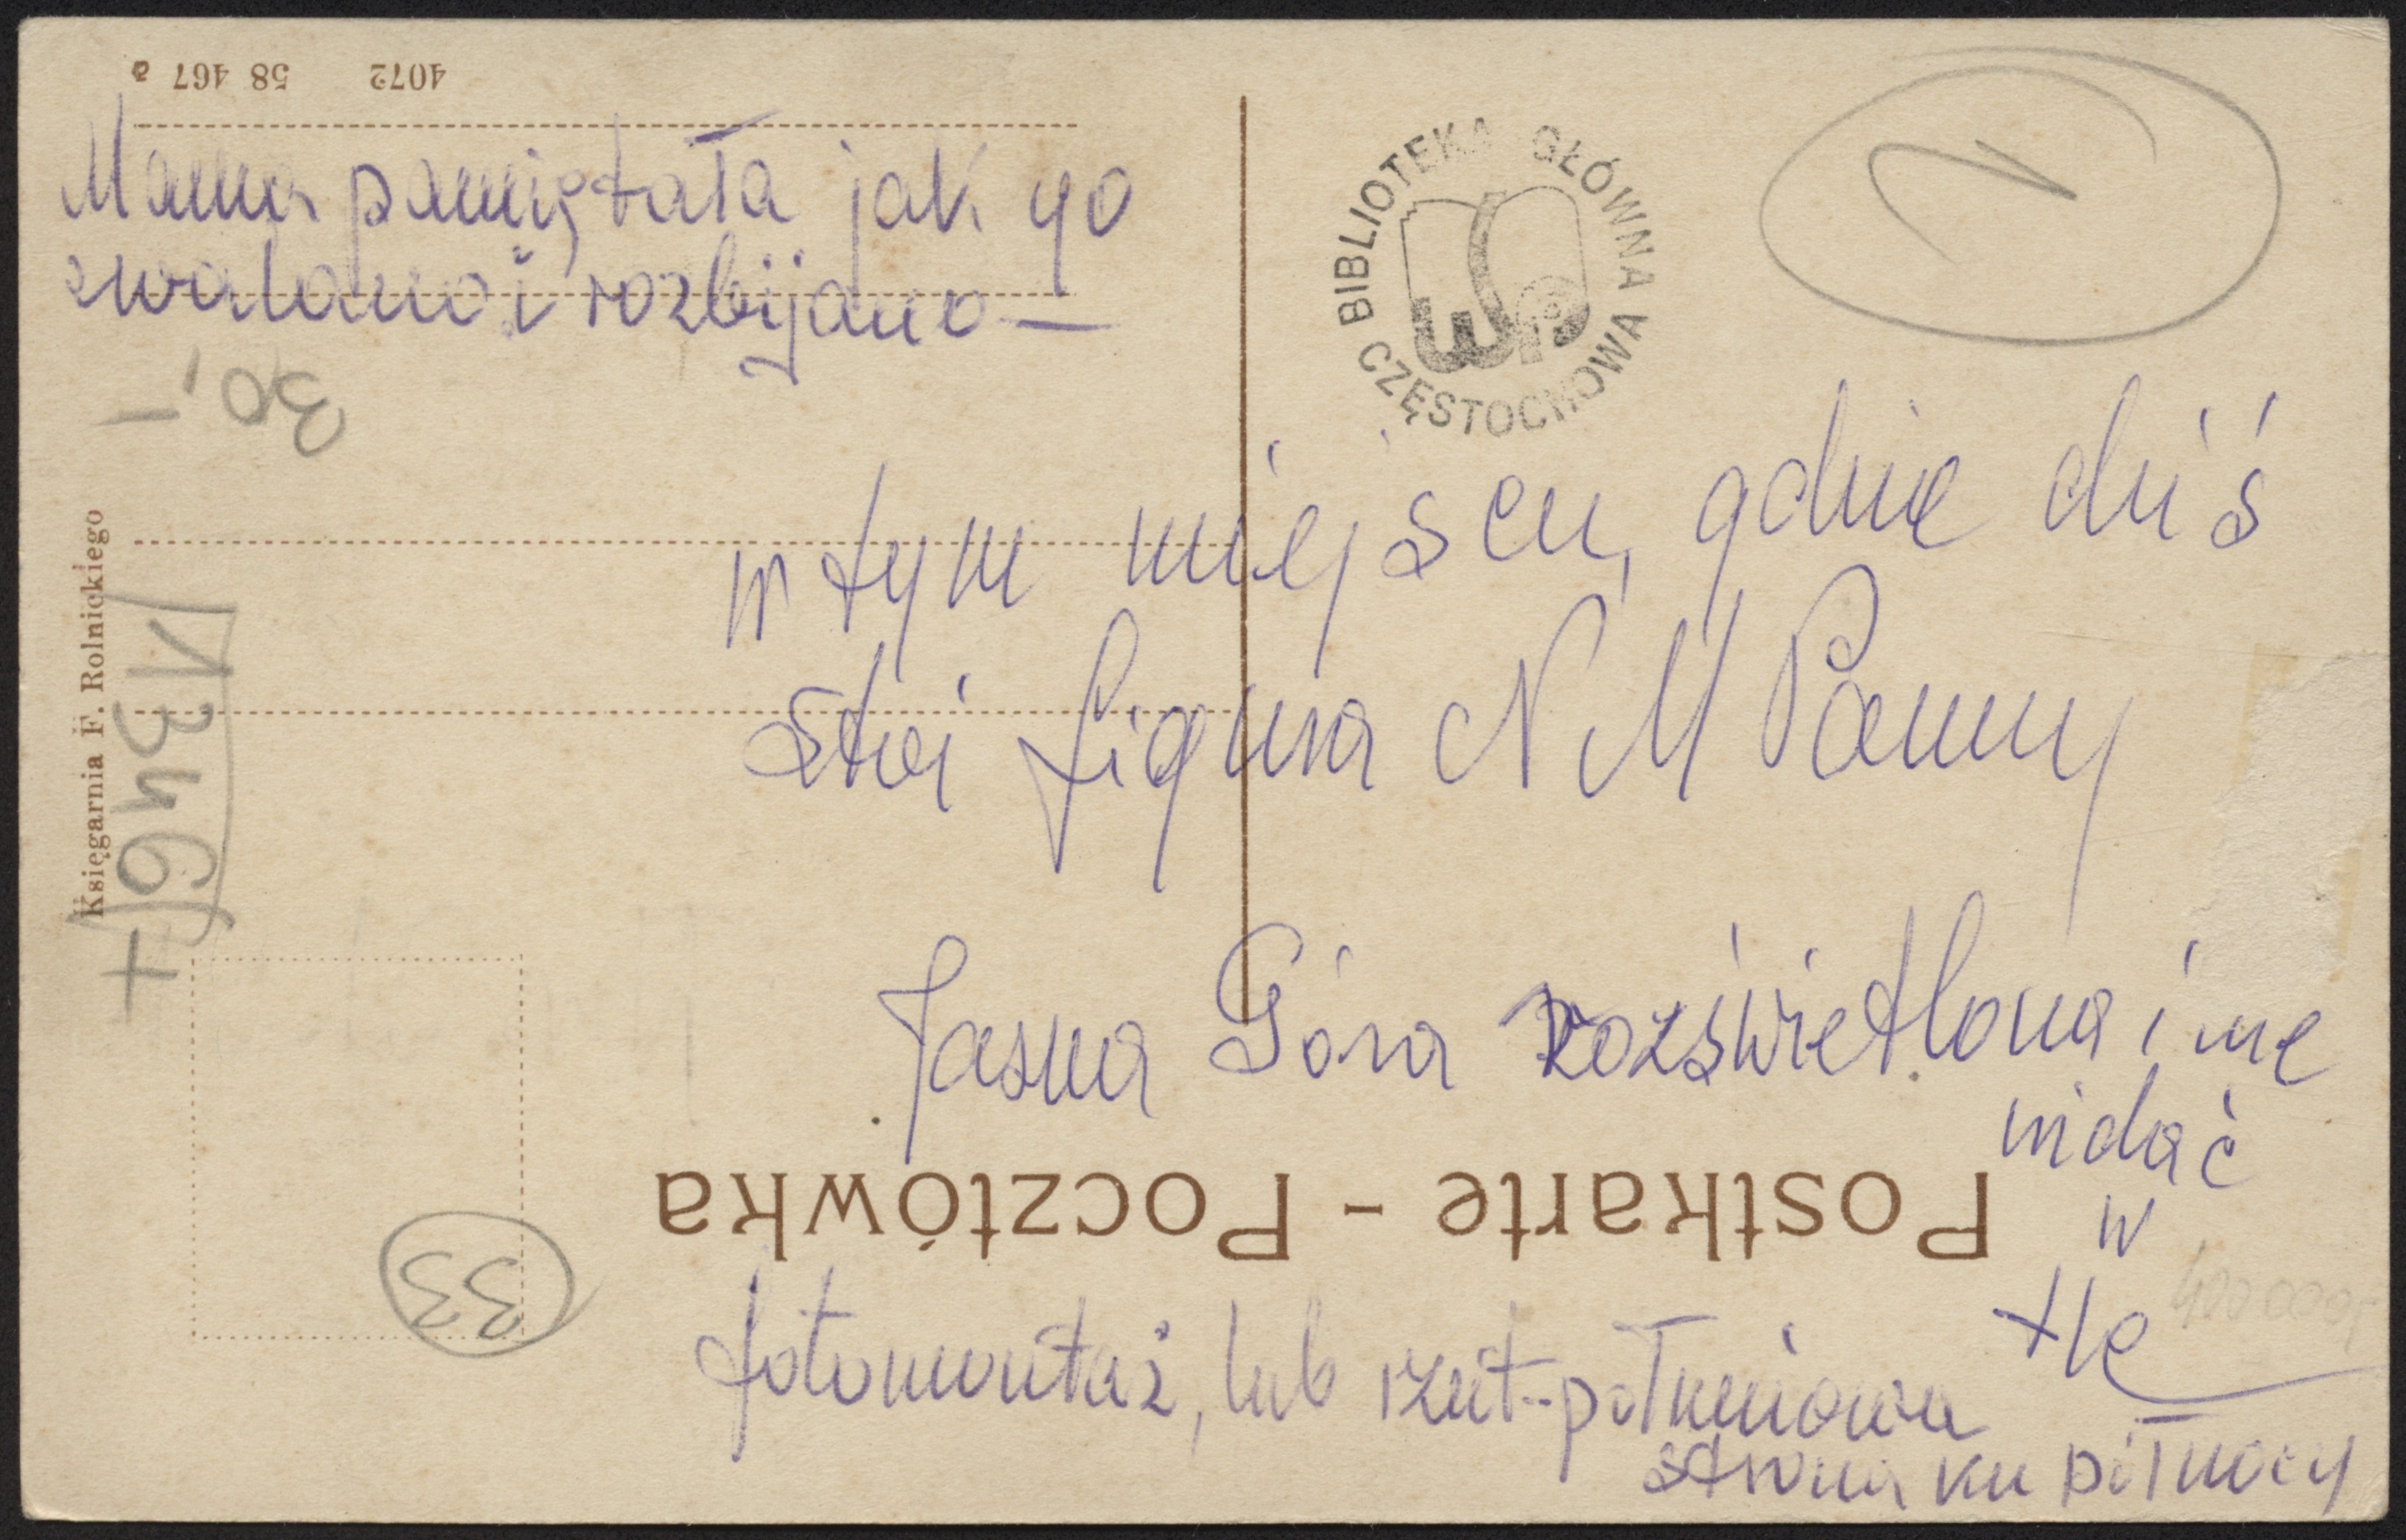 4072 58 467 a
Mama pamiętała jak go
zwalano i rozbijano —
30,-
1
BIBLIOTEKA GŁÓWNA
WSP
CZĘSTOCHOWA
w tym miejscu, gdzie dziś
stoi figura N M Panny
Księgarnia F. Rolnickiego
1346
+
Jasna Góra rozświetlona i nie
widać
w
tle
Postkarte - Pocztówka
33
fotomontaż, lub rzut-południowa
strona ku północy